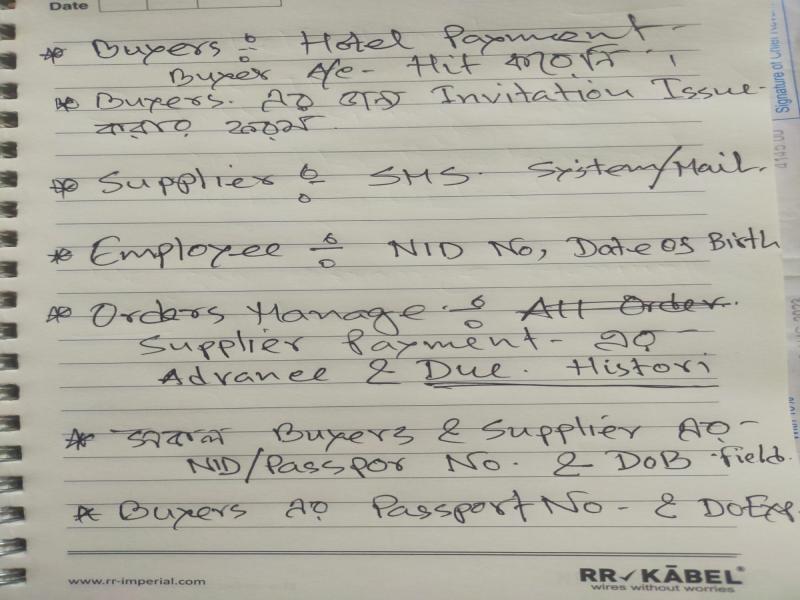 Date
* Buyers : Hotel Payment -
Buyer A/c - Hit করেনি ।
* Buyers. এর জন্য Invitation Issue -
করার অপশন
* Supplier : SMS. System/Mail.
* Employee : NID No, Date of Birth
* Orders Manage : All Order.
Supplier Payment - এর
Advance & Due. Histori
* সকল Buyers & Supplier এর -
NID/Passpor No. & DoB field.
* Buyers এর Passport No - & DoExp.
www.rr-imperial.com
RR KABEL
wires without worries
Signature of Chief
4145.00